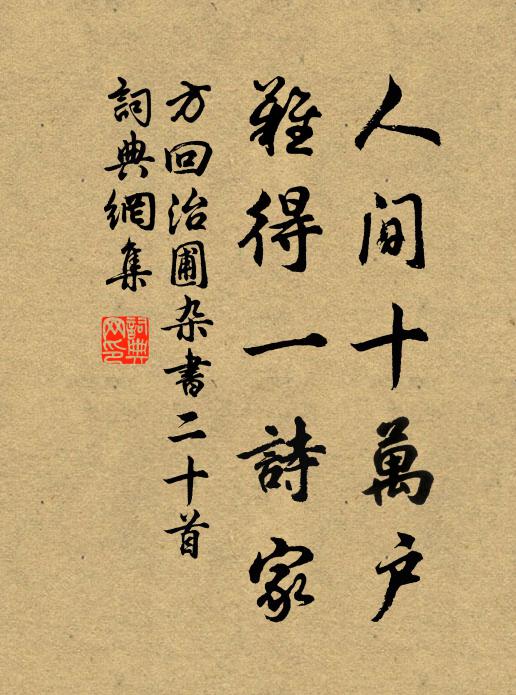 人间十萬户
難得一詩家
方回治圃杂書二十首
詞典網集
詞典網印